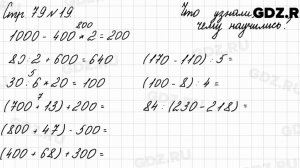 Стр 79 N 19
Что узнали,
чему научились?
GDZ.RU
800
1000 - 400 * 2 = 200
80 : 2 + 600 = 640
(170 - 110) : 5 =
5
30 : 6 * 20 = 100
(100 - 8) : 4 =
(700 + 13) + 200 =
84 : (230 - 218) =
(800 + 47) - 500 =
(400 + 68) + 300 =